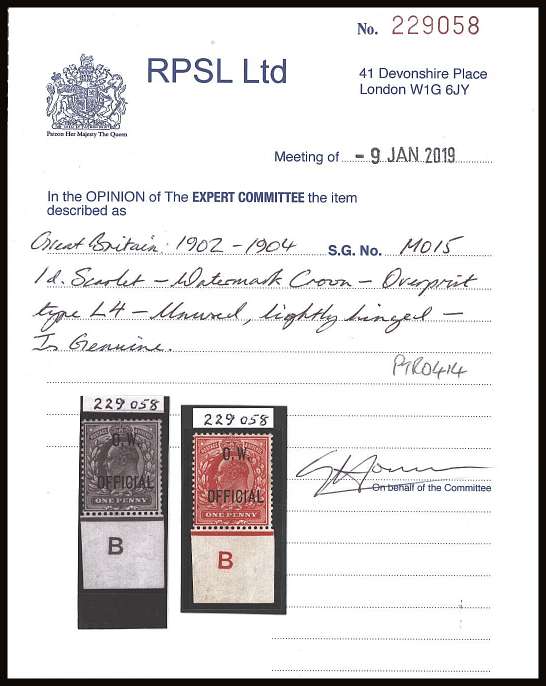 No. 229058
RPSL Ltd
41 Devonshire Place
London W1G 6JY
Patron Her Majesty The Queen
Meeting of - 9 JAN 2019
In the OPINION of The EXPERT COMMITTEE the item
described as
Great Britain. 1902 - 1904 S.G. No. MO15
1d. Scarlet - Watermark Crown - Overprint
type L4 - Unused, lightly hinged -
Is Genuine.
PTRO414
229 058
229 058
O.W.
OFFICIAL
ONE PENNY
B
O.W.
OFFICIAL
ONE PENNY
B
On behalf of the Committee